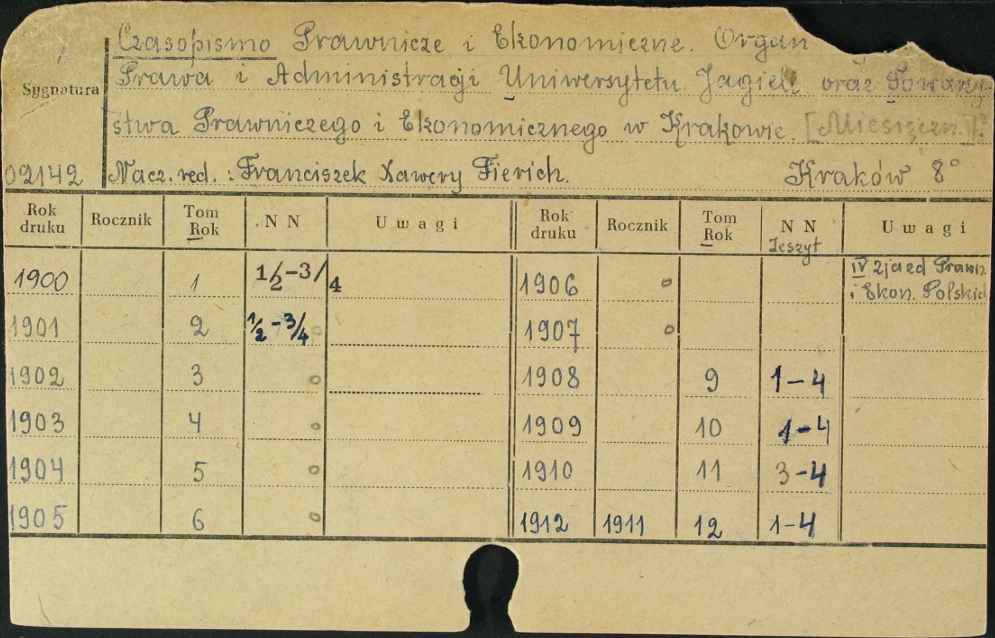 Czasopismo Prawnicze i Ekonomiczne. Organ
Prawa i Administracji Uniwersytetu Jagiell oraz Towarzy-
Sygnatura
stwa Prawniczego i Ekonomicznego w Krakowie. [Miesięczn.]
02142 Nacz. red. : Franciszek Xawery Fierich. Kraków 8°
Rok druku Rocznik Tom Rok N N Uwagi Rok druku Rocznik Tom Rok N N Zeszyt Uwagi
1900 1 1/2-3/4 1906 o IV Zjazd Prawn. i Ekon. Polskich
1901 2 1/2-3/4 o 1907 o
1902 3 o 1908 9 1-4
1903 4 o 1909 10 1-4
1904 5 o 1910 11 3-4
1905 6 o 1912 1911 12 1-4